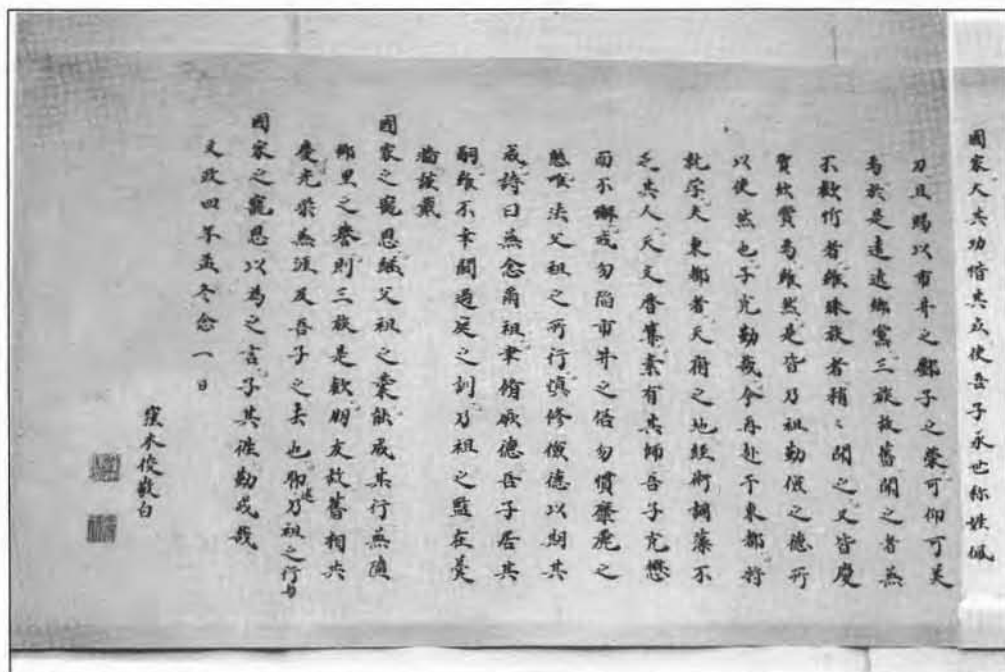 國家大其功惜其志使吾子永世称姓佩
刀且賜以市井之鄽子之榮可仰可美
焉於是遠近鄉黨三族故舊聞之者無
不歡忻者雖疎族者稍〻聞之又皆慶
賀欣賞焉雖然是皆乃祖勤儉之德所
以使然也子克勤哉今再赴于東都将
就学夫東都者天府之地経術詞藻不
乏其人天文唇篆素有其師吾子克懋
而不懈戒勿陥市井之俗勿慣靡麗之
態唯法父祖之所行慎修儉德以嗣其
成詩曰無念爾祖聿脩厥德吾子否其
嗣雖不幸闕過庭之訓乃祖之監在羹
墻欽哉
國家之寵恩繼父祖之業能成其行無隳
鄉里之誉則三族是欽朋友故舊相共
慶光榮無涯及吾子之去也聊述乃祖之行与
國家之寵恩以為之言子其往勤戒哉
文政四年孟冬念一日
窪木俊敬白